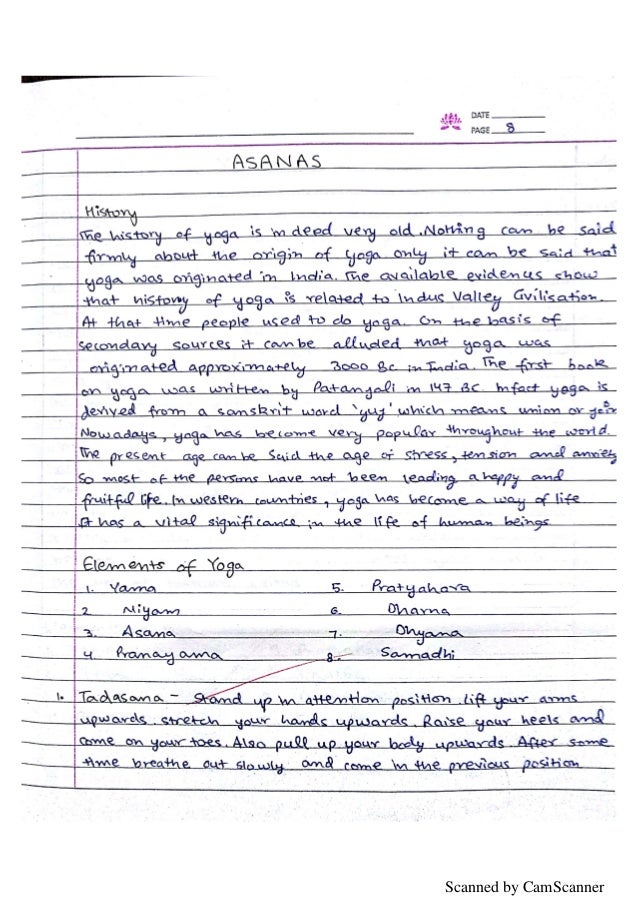 DATE
PAGE 8
ASANAS
History
The history of yoga is indeed very old. Nothing can be said
firmly about the origin of yoga only it can be said that
yoga was originated in India. The available evidences show
that history of yoga is related to Indus Valley Civilisation.
At that time people used to do yoga. On the basis of
secondary sources it can be alluded that yoga was
originated approximately 3000 BC in India. The first book
on yoga was written by Patangali in 147 BC. Infact yoga is
derived from a sanskrit word 'yug' which means union or
Nowadays, yoga has become very popular throughout the world.
The present age can be said the age of stress, tension and anxiety
So most of the persons have not been leading a happy and
fruitful life. In western countries, yoga has become a way of life
It has a vital significance in the life of human beings
Elements of Yoga
1. Yama 5. Pratyahara
2 Niyam 6. Dharna
3. Asana 7. Dhyana
4. Pranayama 8. Samadhi
1. Tadasana - Stand up in attention position. lift your arms
upwards. stretch your hands upwards. Raise your heels and
come on your toes. Also pull up your body upwards. After some
time breathe out slowly and come in the previous position
Scanned by CamScanner